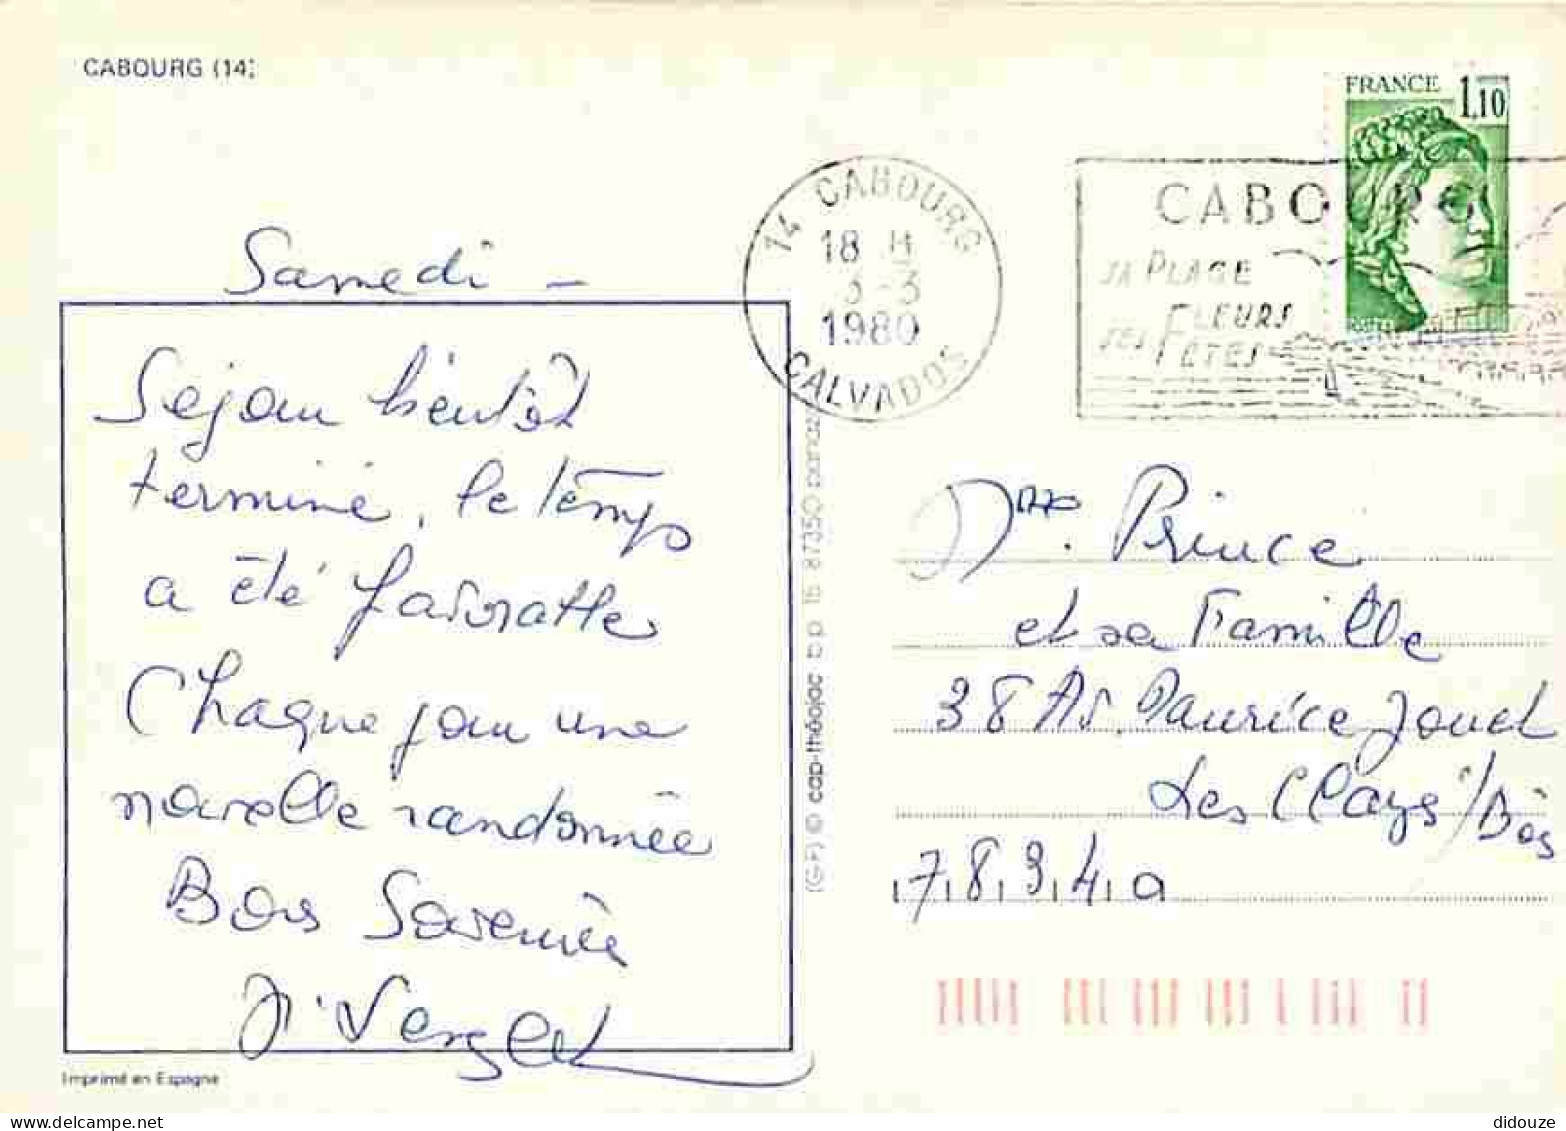 CABOURG (14)
FRANCE 1,10
14 CABOURG
18 H
3-3
1980
CALVADOS
CABOURG
SA PLAGE
SES FLEURS
FETES
Samedi -
Sejour bientôt
terminé, le temps
a été favorable
Chaque jour une
nouvelle randonnée
Bons Souvenirs
Vergel
Mme. Prince
et sa Famille
38 Av. Maurice Jouet
Les Clays / Bois
78340
(G.F) © cap-théojac b p 15 87350 panazol
Imprimé en Espagne
didouze